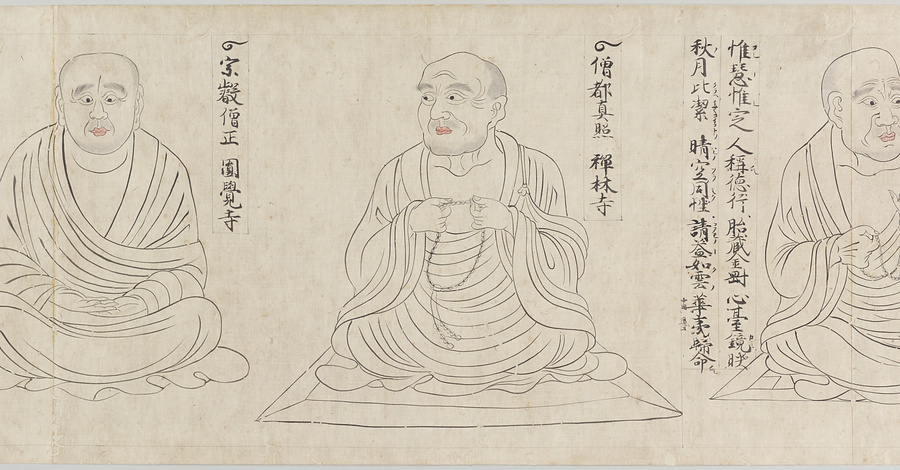 惟慧惟定 人稱德行 胎藏金剛 心臺鏡瑩
秋月比潔 晴空同性 請益如雲 華夷歸命
僧都真照 禪林寺
宗叡僧正 圓覺寺